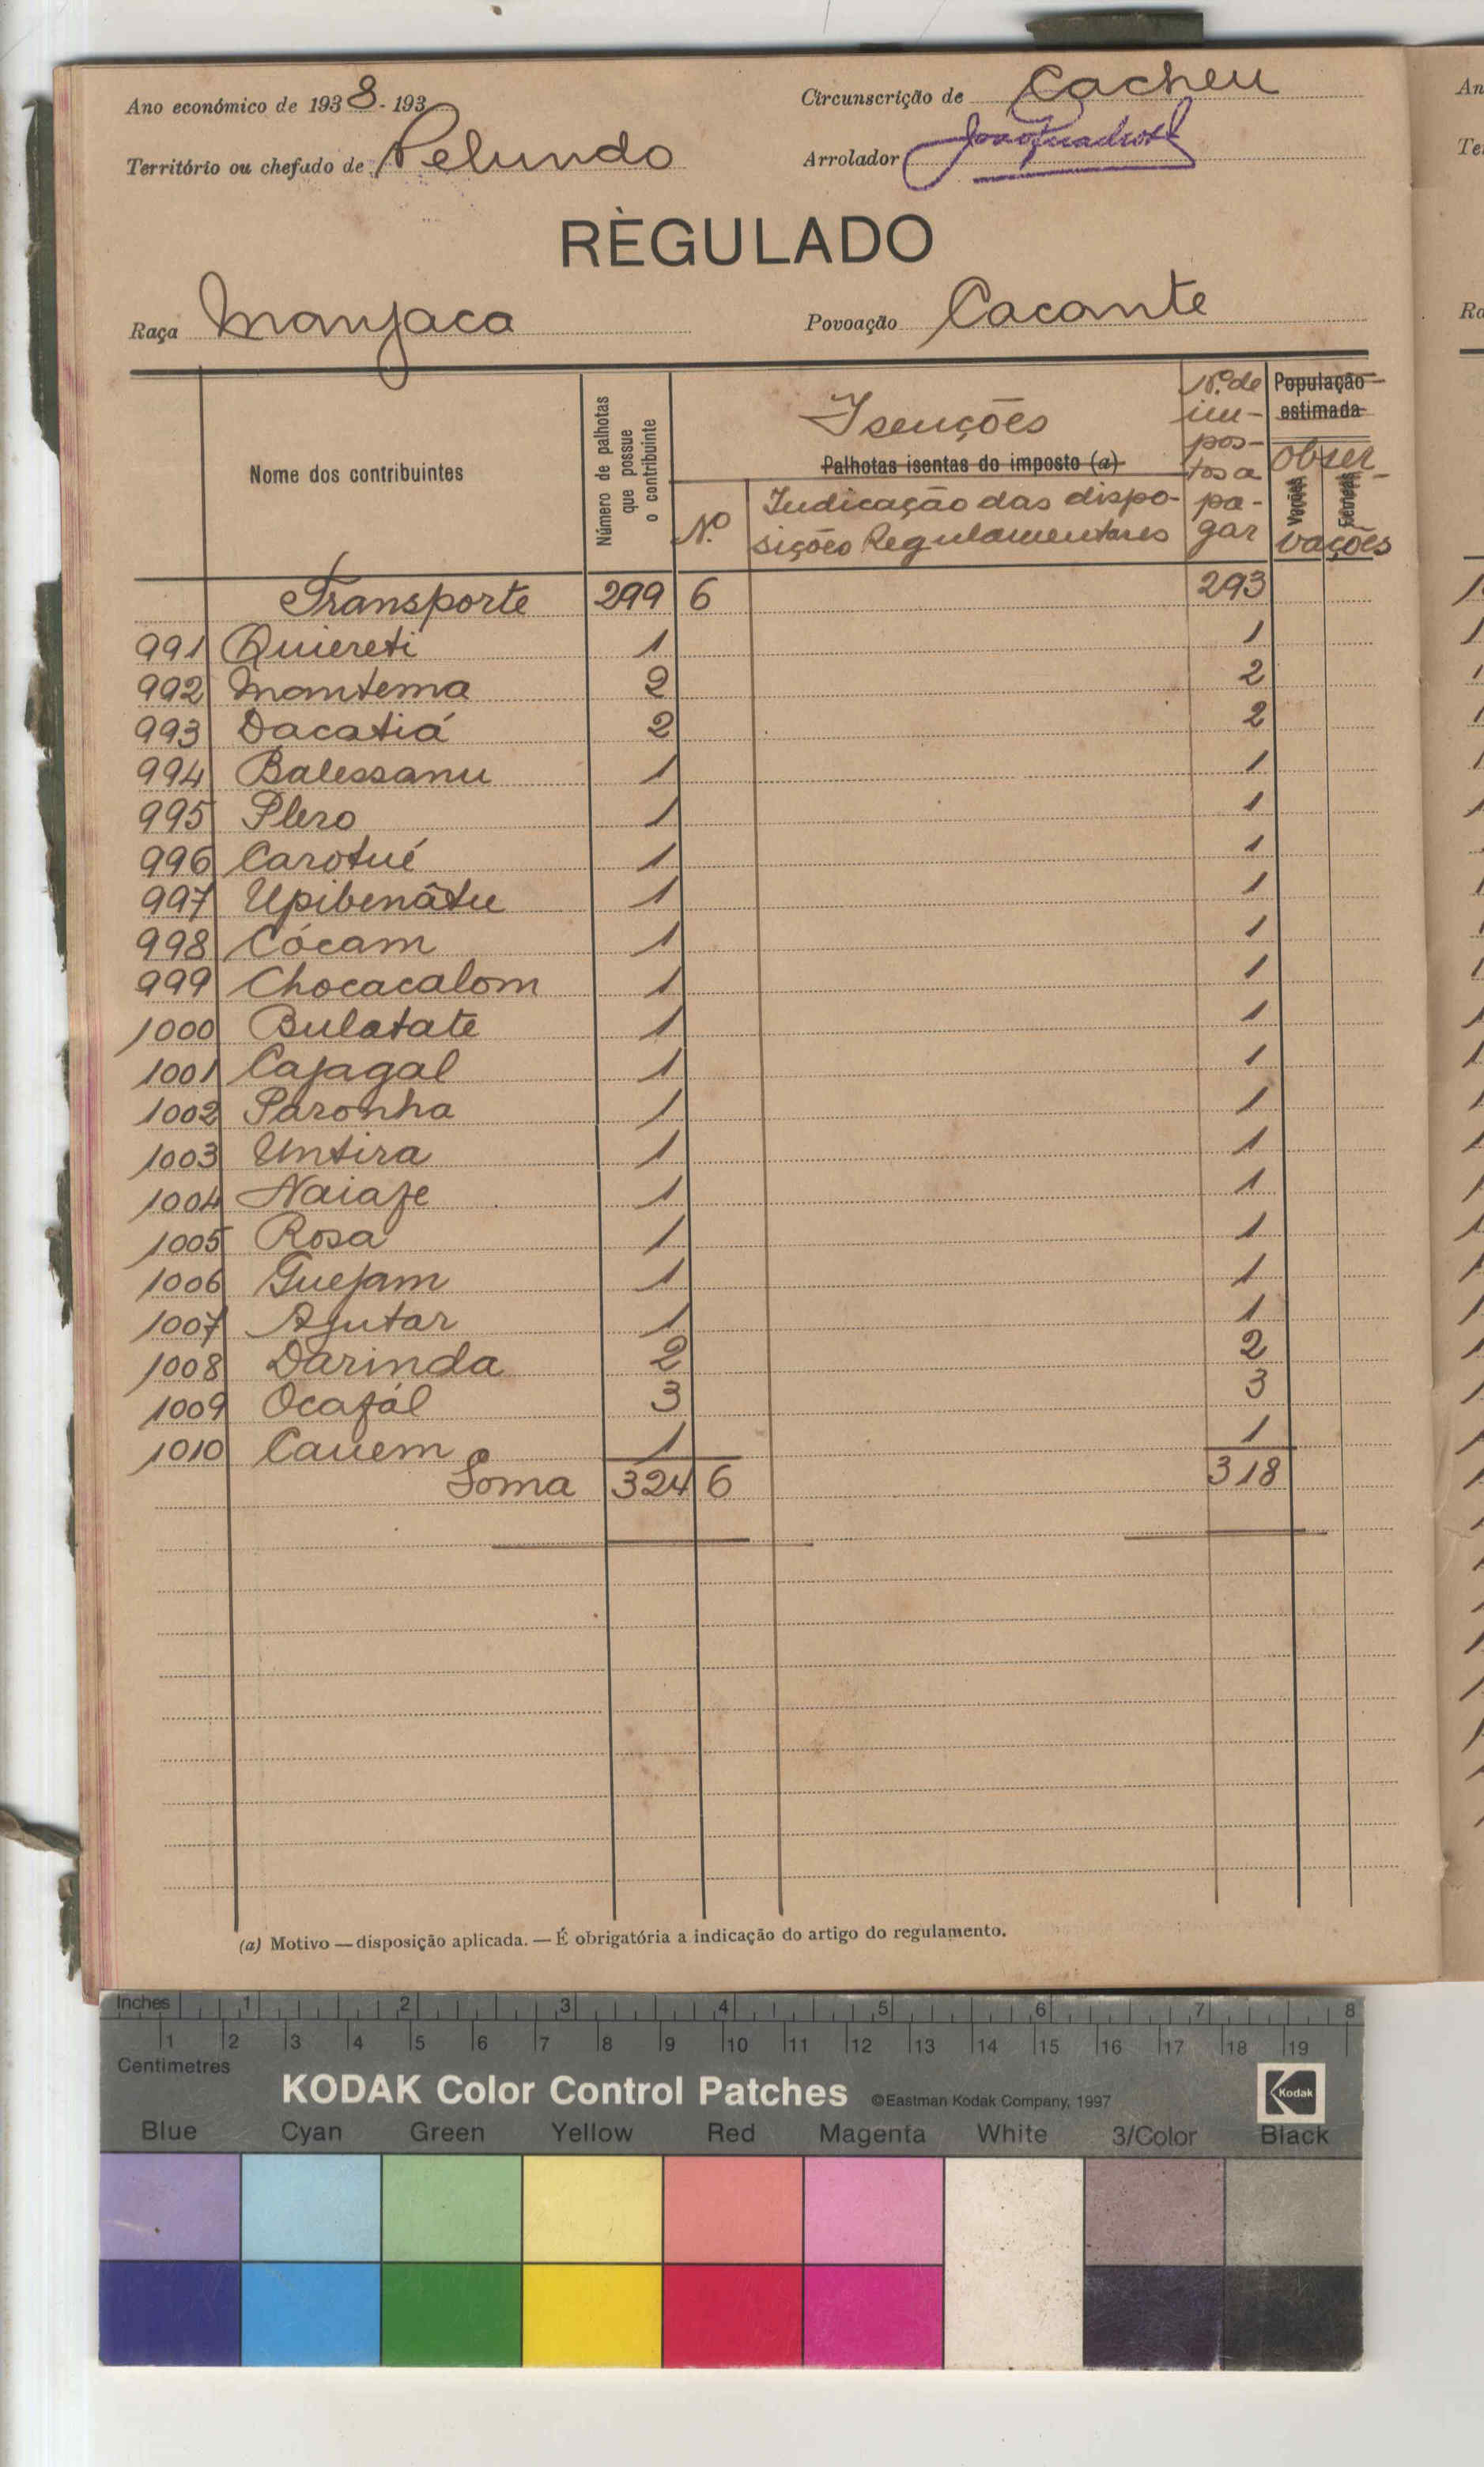 Ano económico de 1938-193
Circunscrição de Cacheu
Território ou chefado de Pelundo
Arrolador
RÈGULADO
Raça Manjaca
Povoação Cacante
Nome dos contribuintes
Número de palhotas que possue o contribuinte
Isenções
Palhotas isentas do imposto (a)
N.º
Indicação das disposições Regulamentares
N.º de impostos a pagar
População estimada
Observações
Transporte 299 6 293
991 Quiereti 1 1
992 Mantema 2 2
993 Dacatiá 2 2
994 Balessanu 1 1
995 Plero 1 1
996 Carotué 1 1
997 Upibenâtu 1 1
998 Cócam 1 1
999 Chocacalom 1 1
1000 Bulatate 1 1
1001 Cajagal 1 1
1002 Paronha 1 1
1003 Untira 1 1
1004 Naiaje 1 1
1005 Rosa 1 1
1006 Guejam 1 1
1007 Agutar 1 1
1008 Darinda 2 2
1009 Ocajál 3 3
1010 Cauem 1 1
Soma 324 6 318
(a) Motivo — disposição aplicada. — É obrigatória a indicação do artigo do regulamento.
Inches 1 2 3 4 5 6 7 8
1 2 3 4 5 6 7 8 9 10 11 12 13 14 15 16 17 18 19
Centimetres
KODAK Color Control Patches ©Eastman Kodak Company, 1997 Kodak
Blue Cyan Green Yellow Red Magenta White 3/Color Black